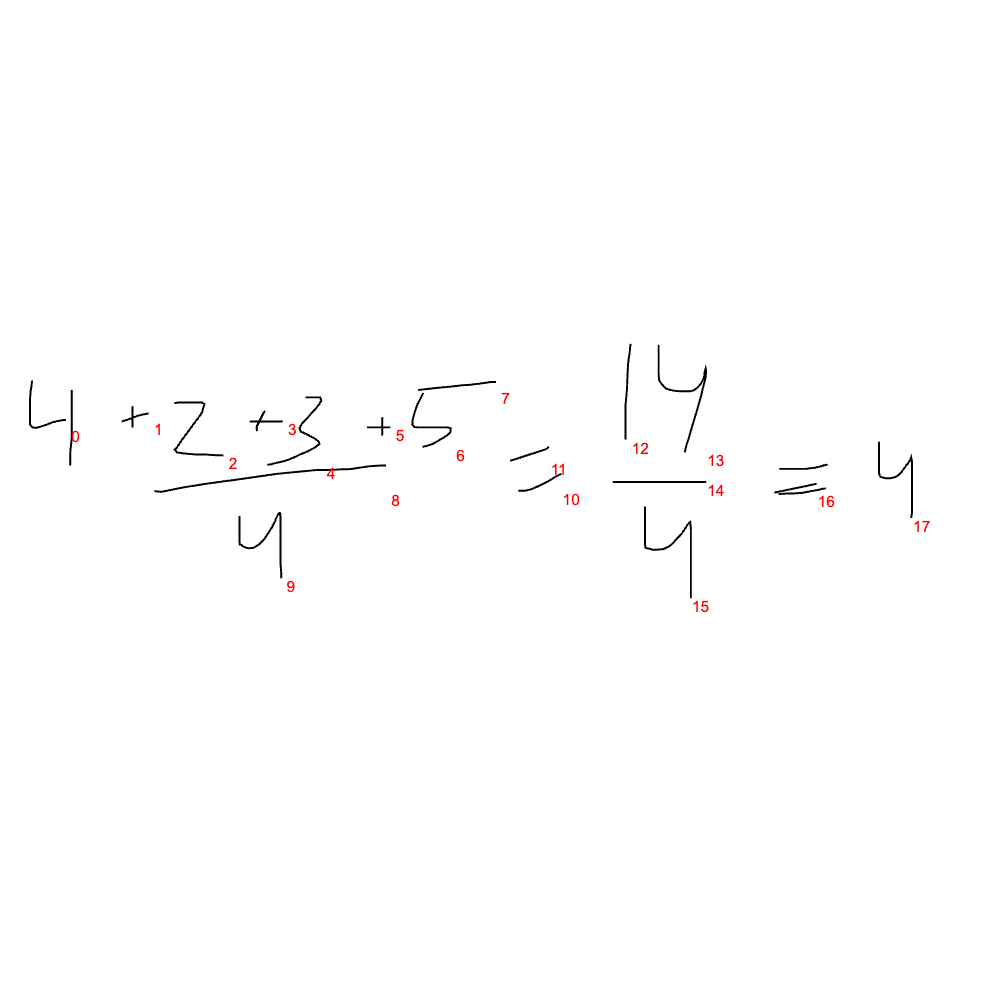 4 + 2 + 3 + 5 / 4 = 14 / 4 = 4
0 1 2 3 4 5 6 7 8 9 10 11 12 13 14 15 16 17